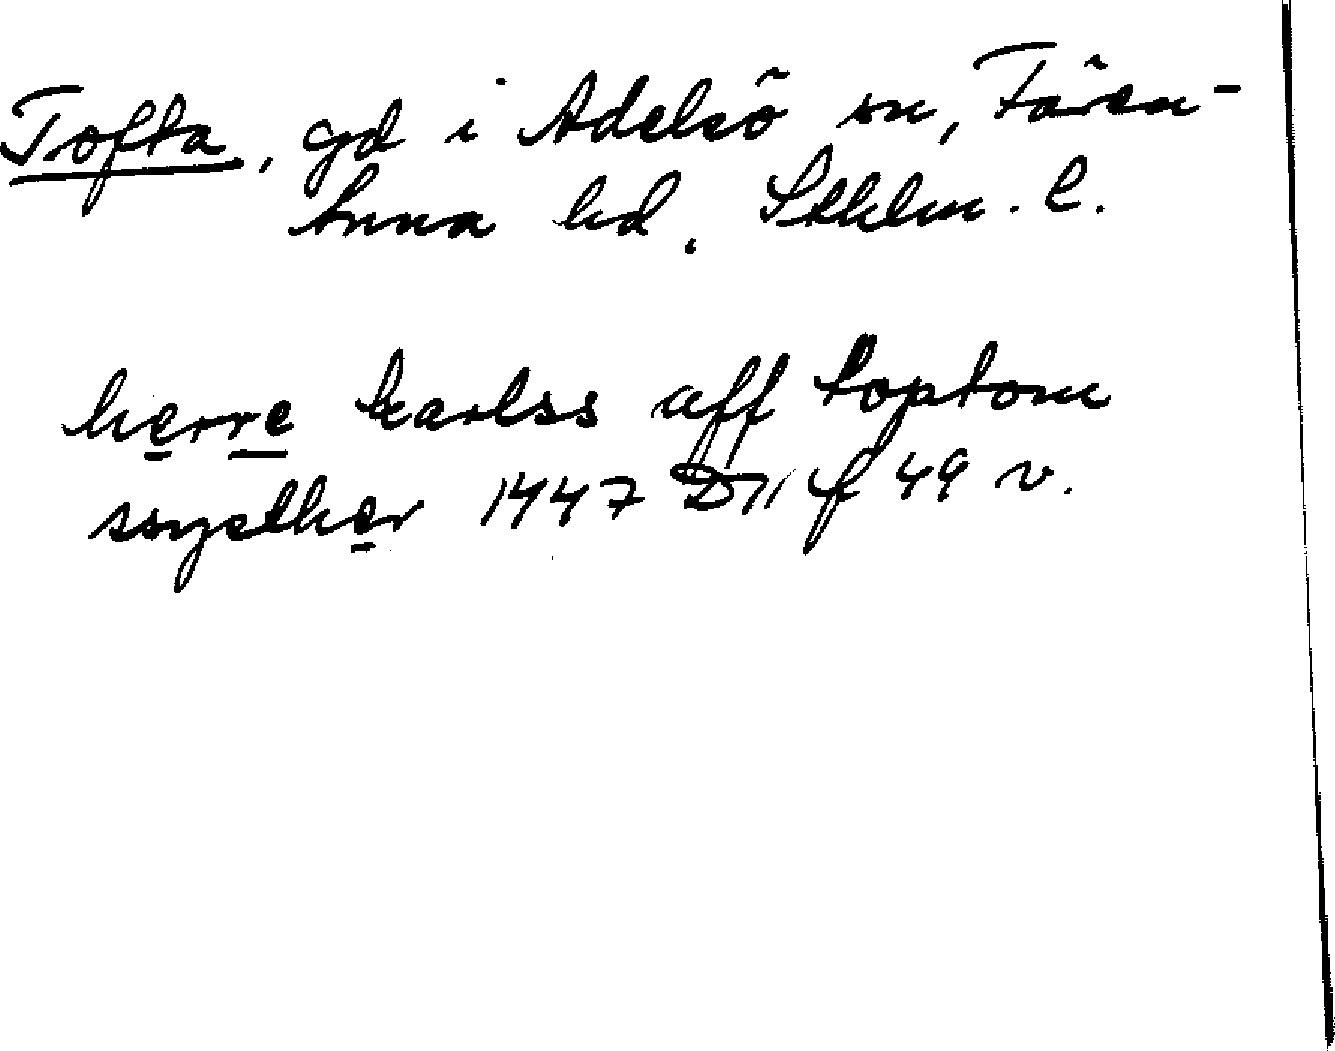 Tofta, gd i Adelsö sn, Fären-
tuna hd. Sthlm. l.
herre karlss aff toptom
ssyslher 1447 D 11 f 49 v.